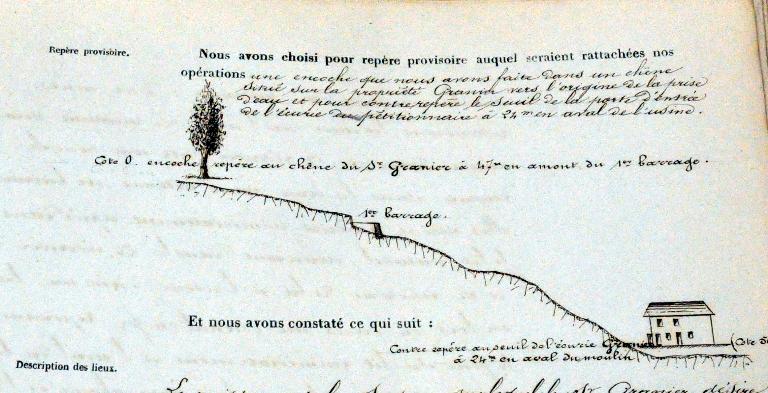 Repère provisoire.
Nous avons choisi pour repère provisoire auquel seraient rattachées nos
opérations une encoche que nous avons faite dans un chêne
situé sur la propriété Granier vers l'origine de la prise
d'eau et pour contre repère le seuil de la porte d'entrée
de l'écurie du pétitionnaire à 24m en aval de l'usine.
Cote 0. encoche repère au chêne du Sr Granier à 47m en amont du 1er barrage.
1er barrage.
Et nous avons constaté ce qui suit :
Contre repère au seuil de l'écurie Granier (Cote
à 24m en aval du moulin
Description des lieux.
Sr Granier désire